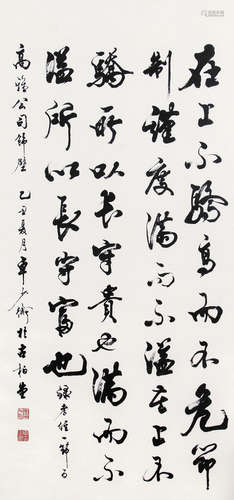 在上不驕高而不危節
制謹度滿而不溢在上不
驕所以長守貴也滿而不
溢所以長守富也 錄孝經一節
高雅公司飾壁 乙丑夏月 於古柏堂